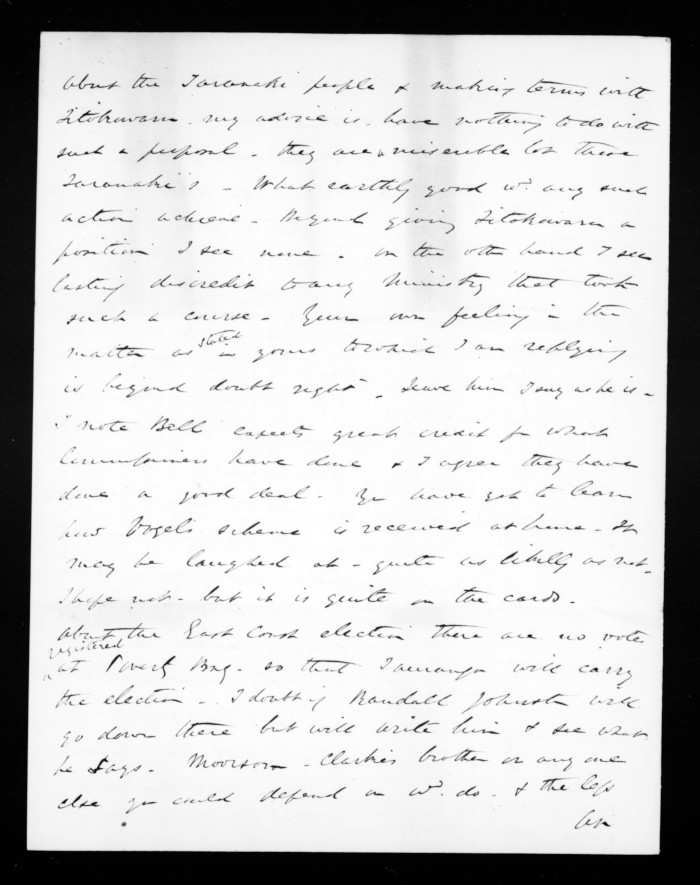 about the Taranaki people & making terms with
Titokowaru. my advice is. have nothing to do with
such a proposal. they are a miserable lot these
Taranaki's - What earthly good wd. any such
action achieve - Beyond giving Titokowaru a
position I see none. on the oth hand I see
lasting discredit to any Ministry that took
such a course - Your own feeling in the
matter as stated in yours to which I am replying
is beyond doubt right. Leave him I say as he is -
I note Bell expects great credit for what
Commissioners have done & I agree they have
done a good deal. Yr have yet to learn
how Vogel's scheme is received at home - It
may be laughed at - quite as likely as not.
I hope not - but it is quite on the cards.
about the East Coast election there are no votes
registered
at Poverty Bay - so that Tauranga will carry
the election - I doubt if Randall Johnston will
go down there but will write him & see what
he says. Moorsom - Clarkes brother or any one
else yr could depend on wd. do. & the less